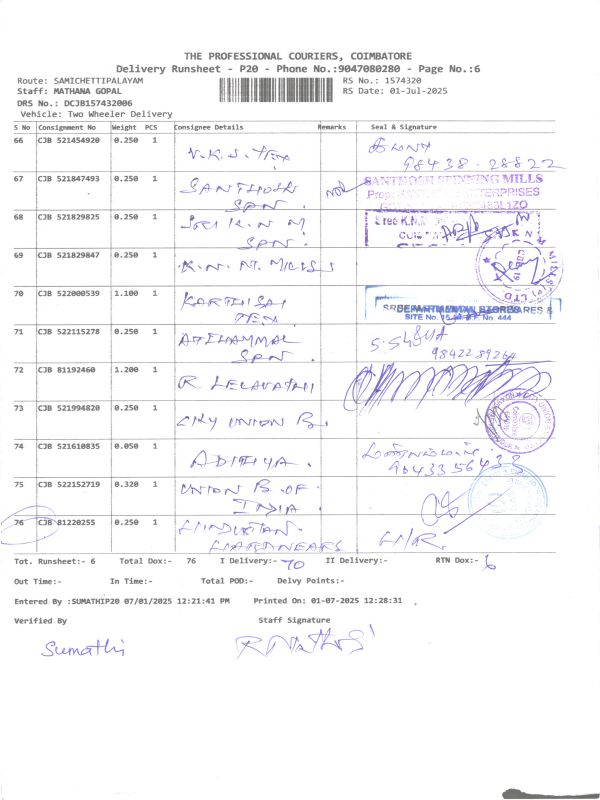 THE PROFESSIONAL COURIERS, COIMBATORE
Delivery Runsheet - P20 - Phone No.:9047080280 - Page No.:6
Route: SAMICHETTIPALAYAM RS No.: 1574320
Staff: MATHANA GOPAL RS Date: 01-Jul-2025
DRS No.: DCJB157432006
Vehicle: Two Wheeler Delivery
S No Consignment No Weight PCS Consignee Details Remarks Seal & Signature
66 CJB 521454920 0.250 1 V.K.S. TEX
98438-28822
67 CJB 521847493 0.250 1 SANTHOSH
SPN. SANTHOSH SPINNING MILLS
68 CJB 521829825 0.250 1 SRI K.N M
SPN.
69 CJB 521829847 0.250 1 K.N.M. MILLS
70 CJB 522000539 1.100 1 KARTHI SAI
TEX.
SITE No. No. 444
71 CJB 522115278 0.250 1
SPN. 9842289264
72 CJB 81192460 1.200 1 R LELAVATHI
73 CJB 521994820 0.250 1 CITY UNION B.
74 CJB 521610835 0.050 1 ADITHYA.
9043356438
75 CJB 522152719 0.320 1 UNION B. OF
INDIA
76 CJB 81220255 0.250 1 HINDUSTAN.
HARDWEARS H/R.
Tot. Runsheet:- 6 Total Dox:- 76 I Delivery:- 70 II Delivery:- RTN Dox:- 6
Out Time:- In Time:- Total POD:- Delvy Points:-
Entered By :SUMATHIP20 07/01/2025 12:21:41 PM Printed On: 01-07-2025 12:28:31
Verified By Staff Signature
Sumathi